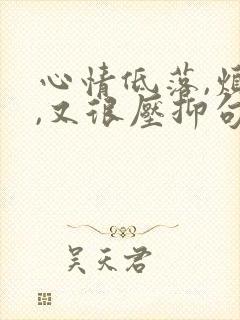 心情低落,烦
,又很壓抑句
吴天君